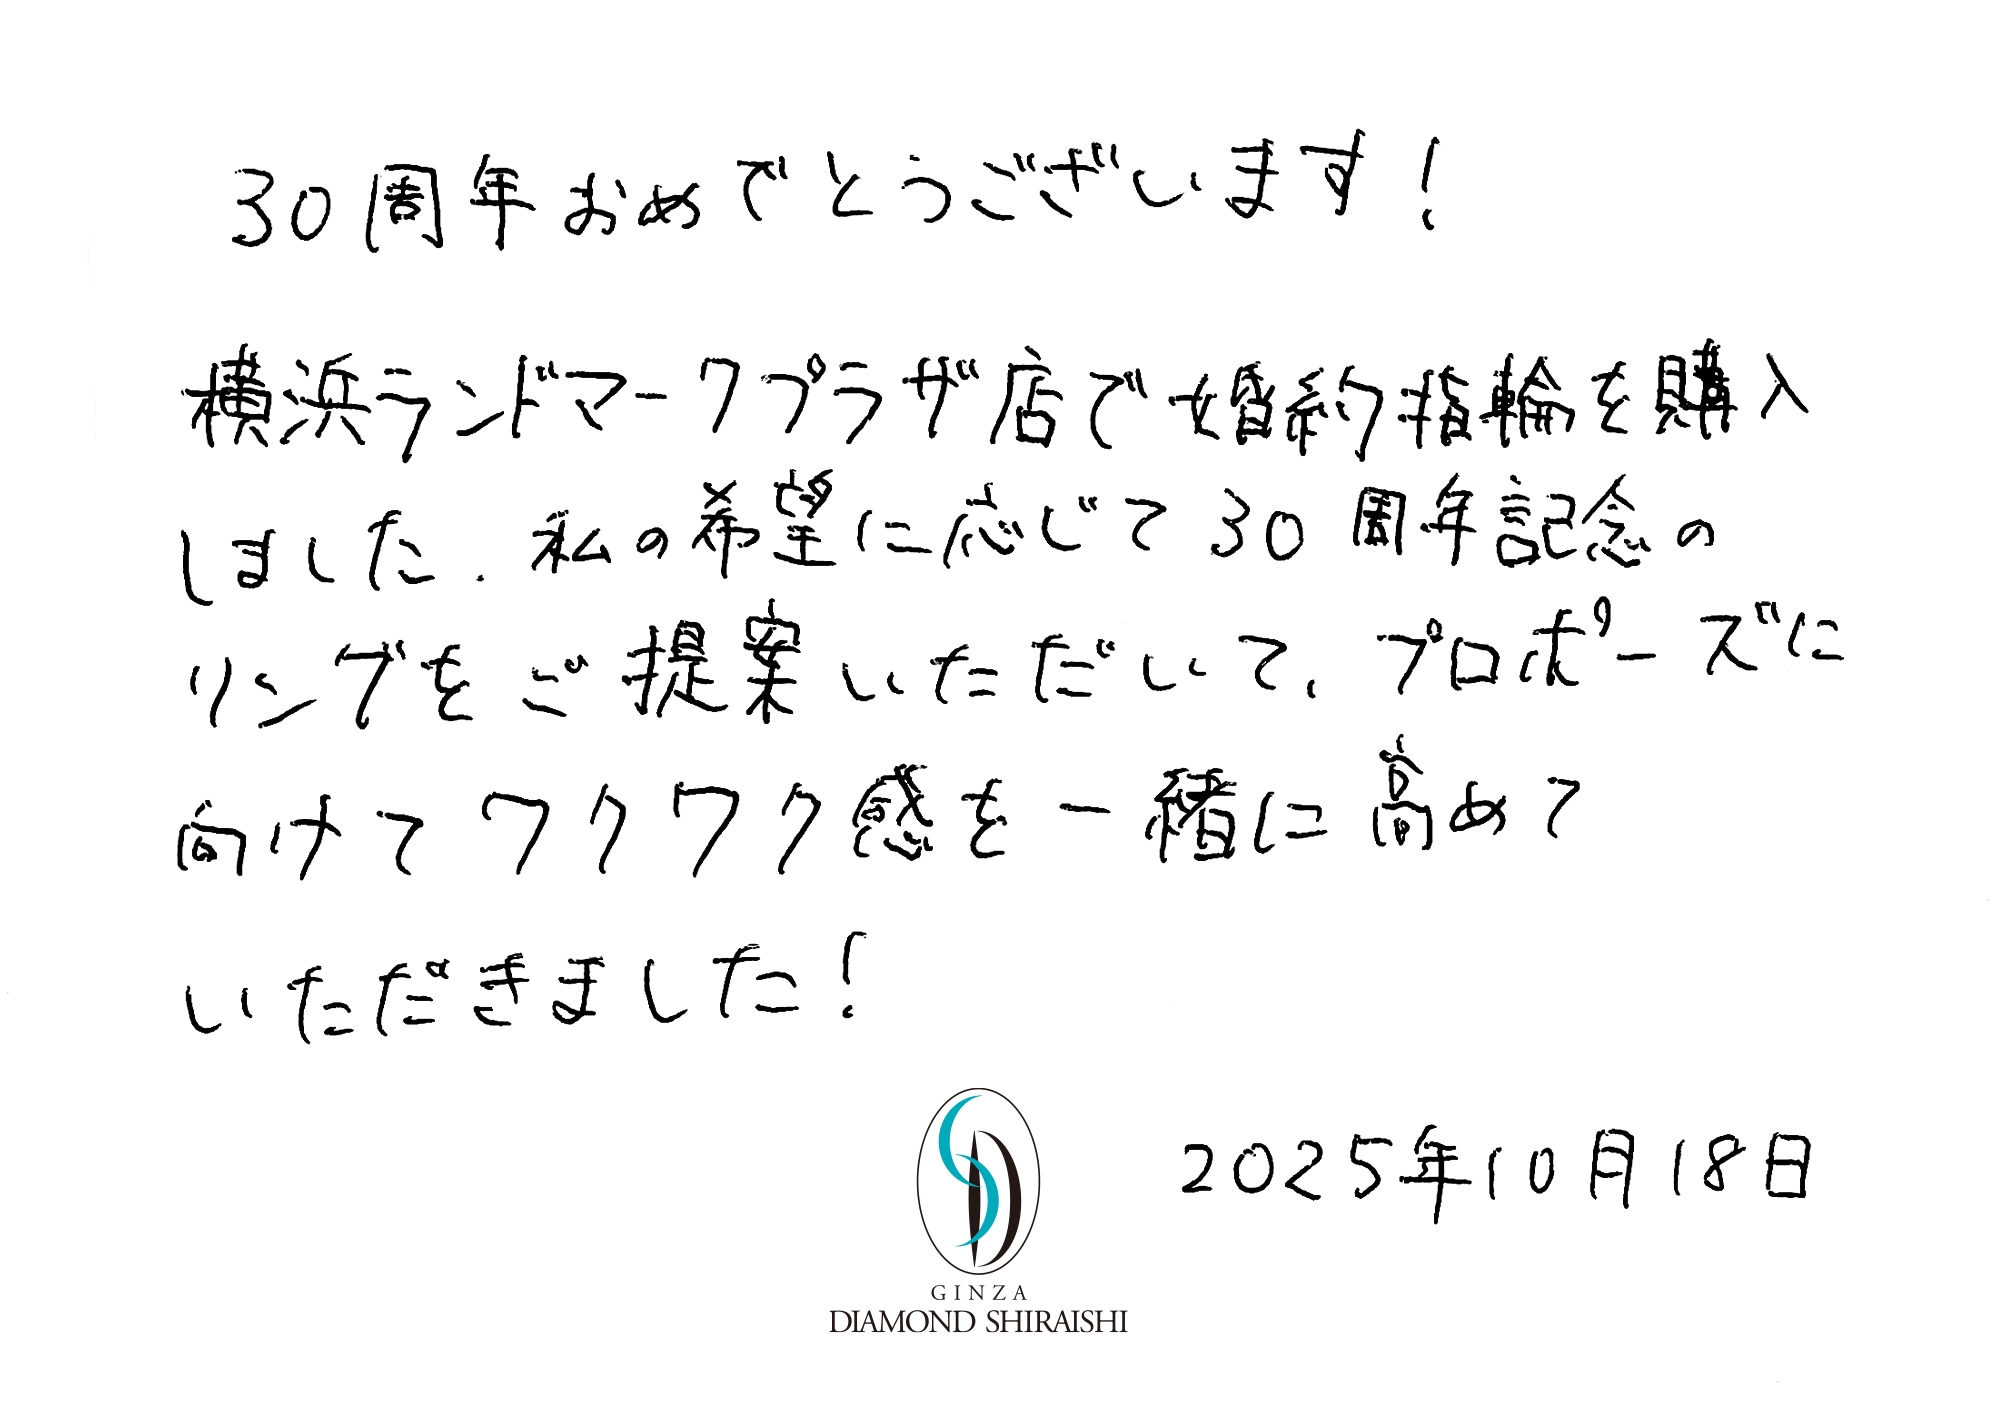 30周年おめでとうございます!
横浜ランドマークプラザ店で婚約指輪を購入
しました. 私の希望に応じて30周年記念の
リングをご提案いただいて、プロポーズに
向けてワクワク感を一緒に高めて
いただきました!
2025年10月18日
GINZA
DIAMOND SHIRAISHI